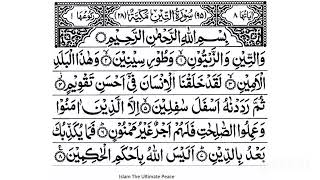 اٰيَاتُهَا ٨ (٩٥) سُوْرَةُ التِّيْنِ مَكِّيَّةٌ (٢٨) رُكُوْعُهَا ١
بِسْمِ اللّٰهِ الرَّحْمٰنِ الرَّحِيْمِ
وَالتِّيْنِ وَالزَّيْتُوْنِ ۙ﴿١﴾ وَطُوْرِ سِيْنِيْنَ ۙ﴿٢﴾ وَهٰذَا الْبَلَدِ
الْاَمِيْنِ ۙ﴿٣﴾ لَقَدْ خَلَقْنَا الْاِنْسَانَ فِيْۤ اَحْسَنِ تَقْوِيْمٍ ۙ﴿٤﴾
ثُمَّ رَدَدْنٰهُ اَسْفَلَ سٰفِلِيْنَ ۙ﴿٥﴾ اِلَّا الَّذِيْنَ اٰمَنُوْا
وَعَمِلُوا الصّٰلِحٰتِ فَلَهُمْ اَجْرٌ غَيْرُ مَمْنُوْنٍ ؕ﴿٦﴾ فَمَا يُكَذِّبُكَ
بَعْدُ بِالدِّيْنِ ؕ﴿٧﴾ اَلَيْسَ اللّٰهُ بِاَحْكَمِ الْحٰكِمِيْنَ ﴿٨﴾
Islam The Ultimate Peace